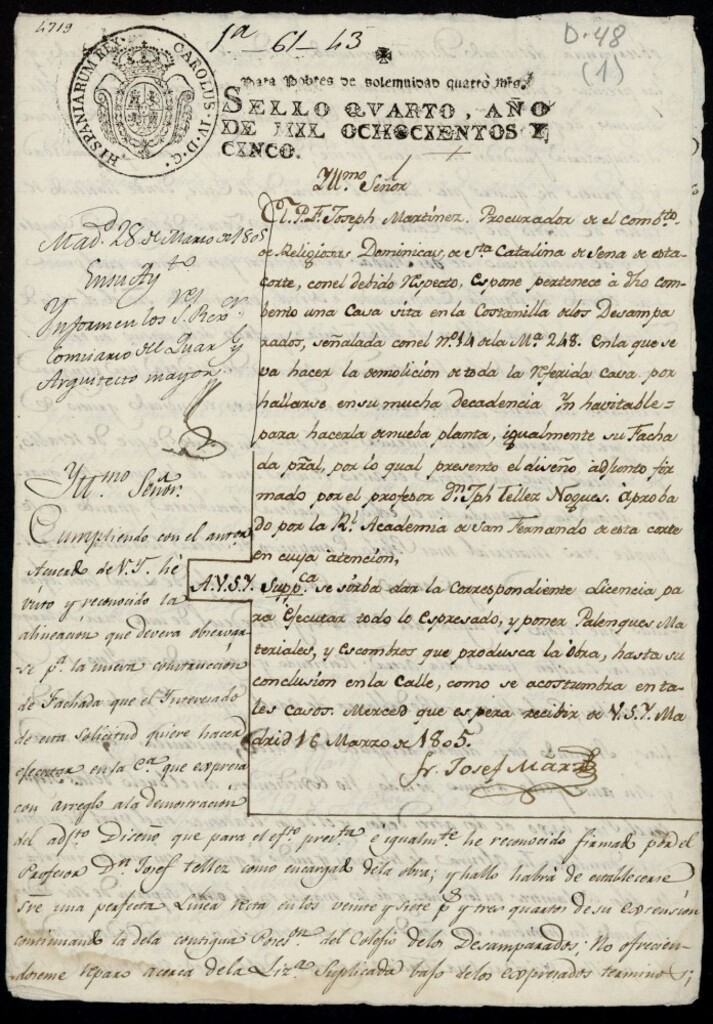 4719
1ª_61_43
D-48
(1)
HISPANIARUM REX. CAROLUS. IV. D. G.
Para Pobres de solemnidad quatro mrs.
SELLO QVARTO, AÑO
DE MIL OCHOCIENTOS Y
CINCO.
Yllmo Señor
El P. F. Joseph Martinez. Procurador de el combto
de Religiosas Dominicas, de Sta Catalina de Sena de esta
corte, con el debido Respecto, Espone pertenece à dho com
bento una Casa sita en la Costanilla de los Desampa
rados, señalada con el No. 14 de la Mª 248. En la que se
va hacer la demolicion de toda la Referida Casa por
hallarse en su mucha decadencia Yn havitable=
para hacerla de nueba planta, igualmente su Facha
da pral, por lo qual presento el diseño adjunto fir
mado por el profesor Dn. Jph Tellez Nogues. aproba
do por la Rl. Academia de San Fernando de esta corte
en cuya atencion,
A.V.S.Y. Suppca se sirba dar la Correspondiente Licencia pa
ra Efecutar todo lo Espresado, y poner Palenques Ma
teriales, y Escombros que produsca la Obra, hasta su
conclusion en la Calle, como se acostumbra en ta-
les casos. Merced que espera recibir de V.S.Y. Ma
drid 16 Marzo de 1805.
Fr. Josef Mārz
Madd. 28 de Marzo de 1805
En su Aytto
Ynformen los Sres. Rexor.
Comisario del Quarl y
Arquitecto mayor.
Yllmo Señor.
Cumpliendo con el anteor
Acuerdo de V.I. hè
visto y reconocido la
alineación que devera observar
-se pa. la nueva construcción
de Fachada que el Interesado
de esta solicitud quiere hacer
efecutar en la Ca. que expresa
con arreglo a la demostración
del adfto Diseño que para el efto presta e igualmte he reconocido firmado por el
Profesor Dn. Josef tellez como encargado de la obra; y hallo habrá de establecerse
sre una perfecta Linea recta en los veinte y siete ps. y tres quartos de su extension
continuando la de la contigua Poseson. del Colefio de los Desamparados; No ofrecien-
doseme reparo acerca de la Liza Suplicada bafo de los expresados terminos;